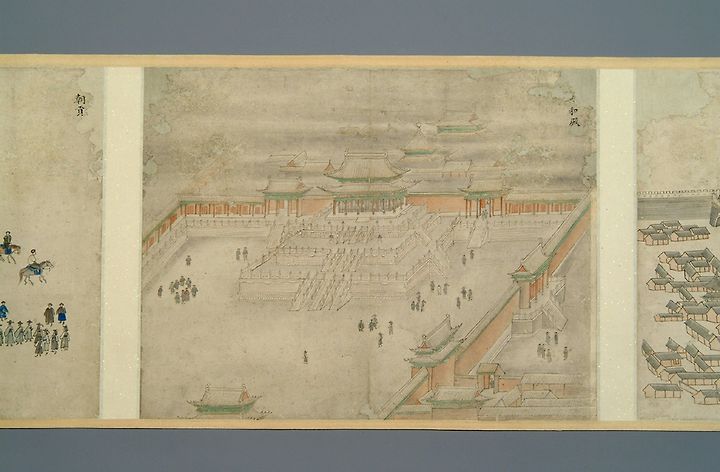 和殿
朝貢